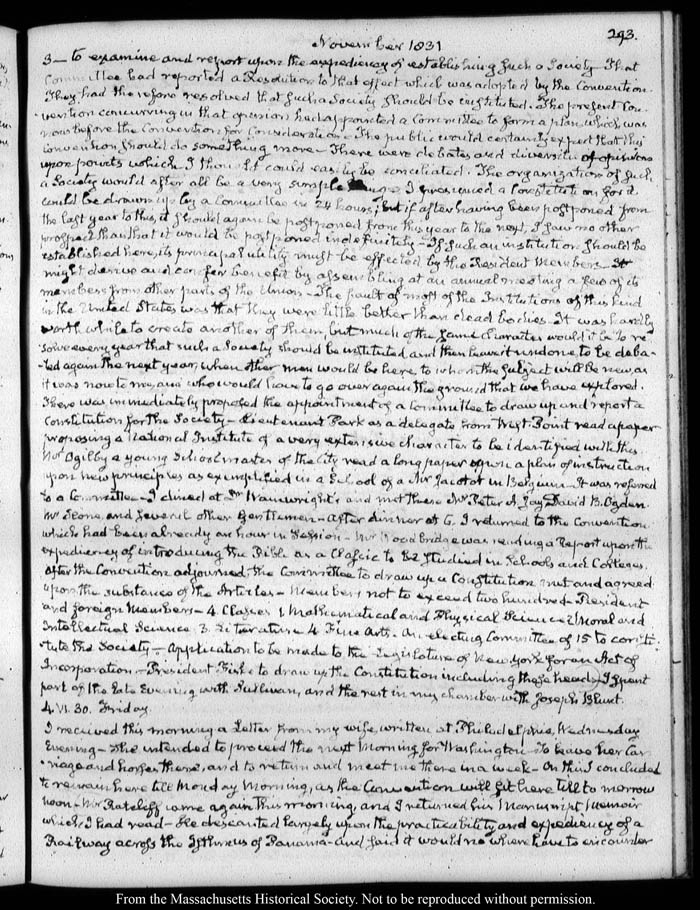 November 1831
293.
3 — to examine and report upon the expediency of establishing such a Society — That
Committee had reported a Resolution to that effect which was adopted by the Convention.
They had therefore resolved that such a Society should be instituted. The present Con-
vention concurring in that opinion had appointed a Committee to form a plan, which was
now before the Convention for Consideration — The public would certainly expect that this
Convention should do something more — There were debates and diversities of opinions
upon points which I thought could easily be conciliated. The organization of such
a Society would after all be a very simple thing — I presumed a Constitution for it
could be drawn up by a Committee in 24 hours, but if after having been postponed from
the last year to this, it should again be postponed from this year to the next, I saw no other
prospect than that it would be postponed indefinitely — If such an institution should be
established here, its principal utility must be effected by the Resident Members — It
might derive and confer benefit by assembling at an annual meeting a few of its
members from other parts of the Union — The fault of most of the Institutions of this kind
in the United States was that they were little better than dead bodies. It was hardly
worth while to create another of them, but much of the same character would it be to re-
solve every year that such a Society should be instituted, and then leave it undone, to be deba-
ted again the next year, when other men would be here to whom the subject will be new, as
it was now to me, and who would have to go over again the ground that we have explored.
There was immediately proposed the appointment of a Committee to draw up and report a
Constitution for the Society — Lieutenant Park as a delegate from West Point read a paper
proposing a National Institute of a very extensive character to be identified with this
Mr Ogilby a young Schoolmaster of the City read a long paper upon a plan of instruction
upon new principles as exemplified in a School of a Mr Jacotot in Belgium — It was referred
to a Committee — I dined at Dr Wainwright's and met there Mr Peter A. Jay, David B. Ogden
Mr Stone, and several other Gentlemen — After dinner at 6. I returned to the Convention
which had been already an hour in Session — Mr Woodbridge was reading a Report upon the
expediency of introducing the Bible as a Classic to be studied in Schools and Colleges.
After the Convention adjourned, the Committee to draw up a Constitution met and agreed
upon the substance of the Articles — Members not to exceed two hundred — President
and foreign Members — 4 Classes 1. Mathematical and Physical Science 2 Moral and
Intellectual Science 3. Literature 4 Fine Arts. An electing Committee of 15 to consti-
tute the Society — Application to be made to the Legislature of New York for an Act of
Incorporation — President Fiske to draw up the Constitution including these heads — I spent
part of the late Evening with Sullivan, and the rest in my chamber with Joseph Blunt.
4. VI. 30. Friday.
I received this morning a Letter from my wife, written at Philadelphia, Wednesday
Evening — She intended to proceed the next Morning for Washington — to leave her Car-
riage and horses there, and to return and meet me there in a week — On this I concluded
to remain here till Monday Morning, as the Convention will sit here till to morrow
noon — Mr Ratcliff came again this morning, and I returned his Manuscript Memoir
which I had read — He descanted largely upon the practicability and expediency of a
Railway across the Isthmus of Panama — and said it would no where have to encounter
From the Massachusetts Historical Society. Not to be reproduced without permission.